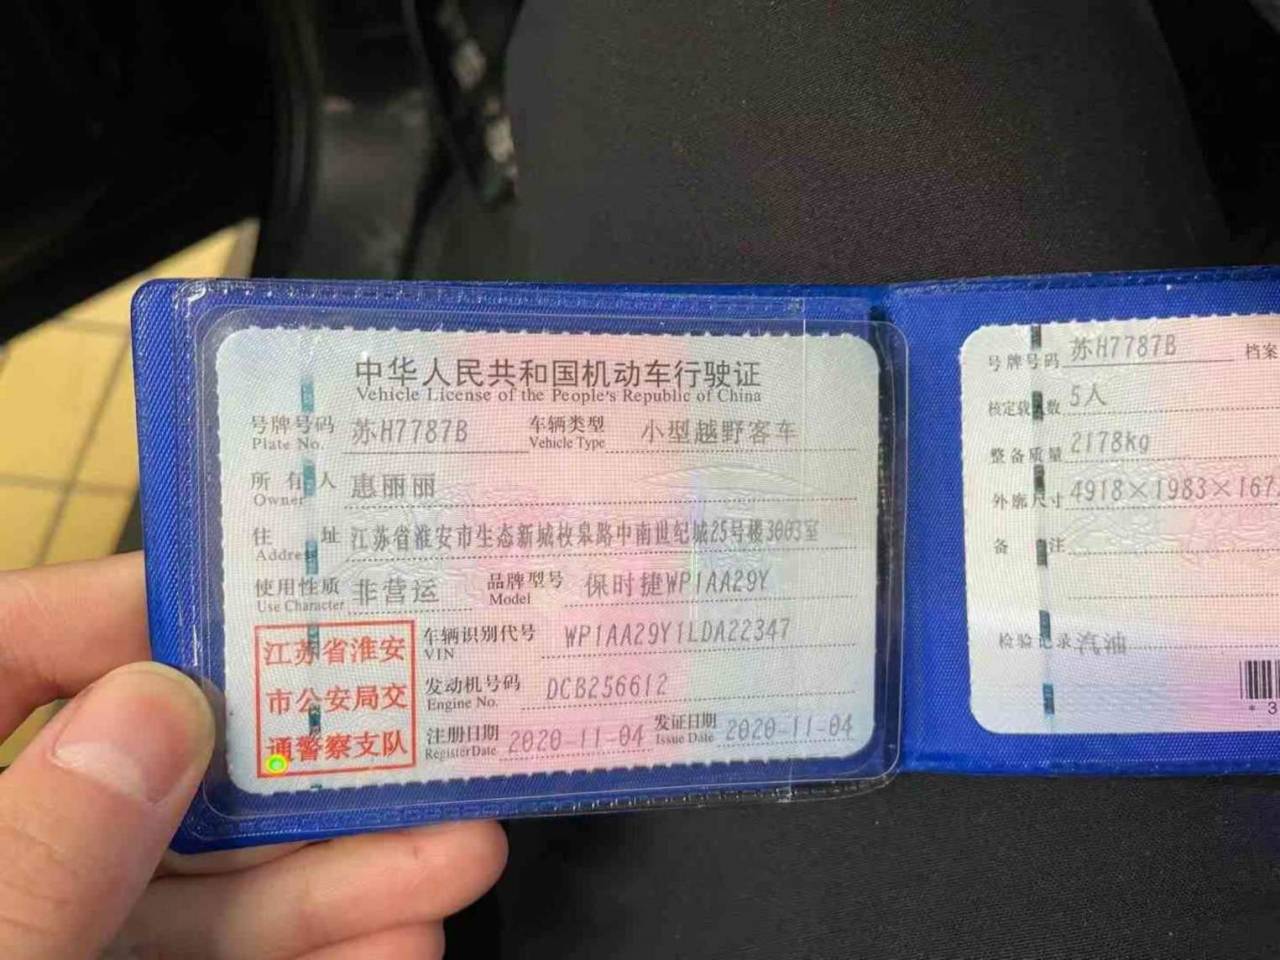 中华人民共和国机动车行驶证
Vehicle License of the People's Republic of China
号牌号码 苏H7787B 车辆类型 小型越野客车
Plate No. Vehicle Type
所有人 惠丽丽
Owner
住址 江苏省淮安市生态新城枚皋路中南世纪城25号楼3003室
Address
使用性质 非营运 品牌型号 保时捷WP1AA29Y
Use Character Model
江苏省淮安
市公安局交
通警察支队
车辆识别代号 WP1AA29Y1LDA22347
VIN
发动机号码 DCB256612
Engine No.
注册日期 2020-11-04 发证日期 2020-11-04
Register Date Issue Date
号牌号码 苏H7787B 档案
核定载人数 5人
整备质量 2178kg
外廓尺寸 4918×1983×167
备注
检验记录 汽油
*3